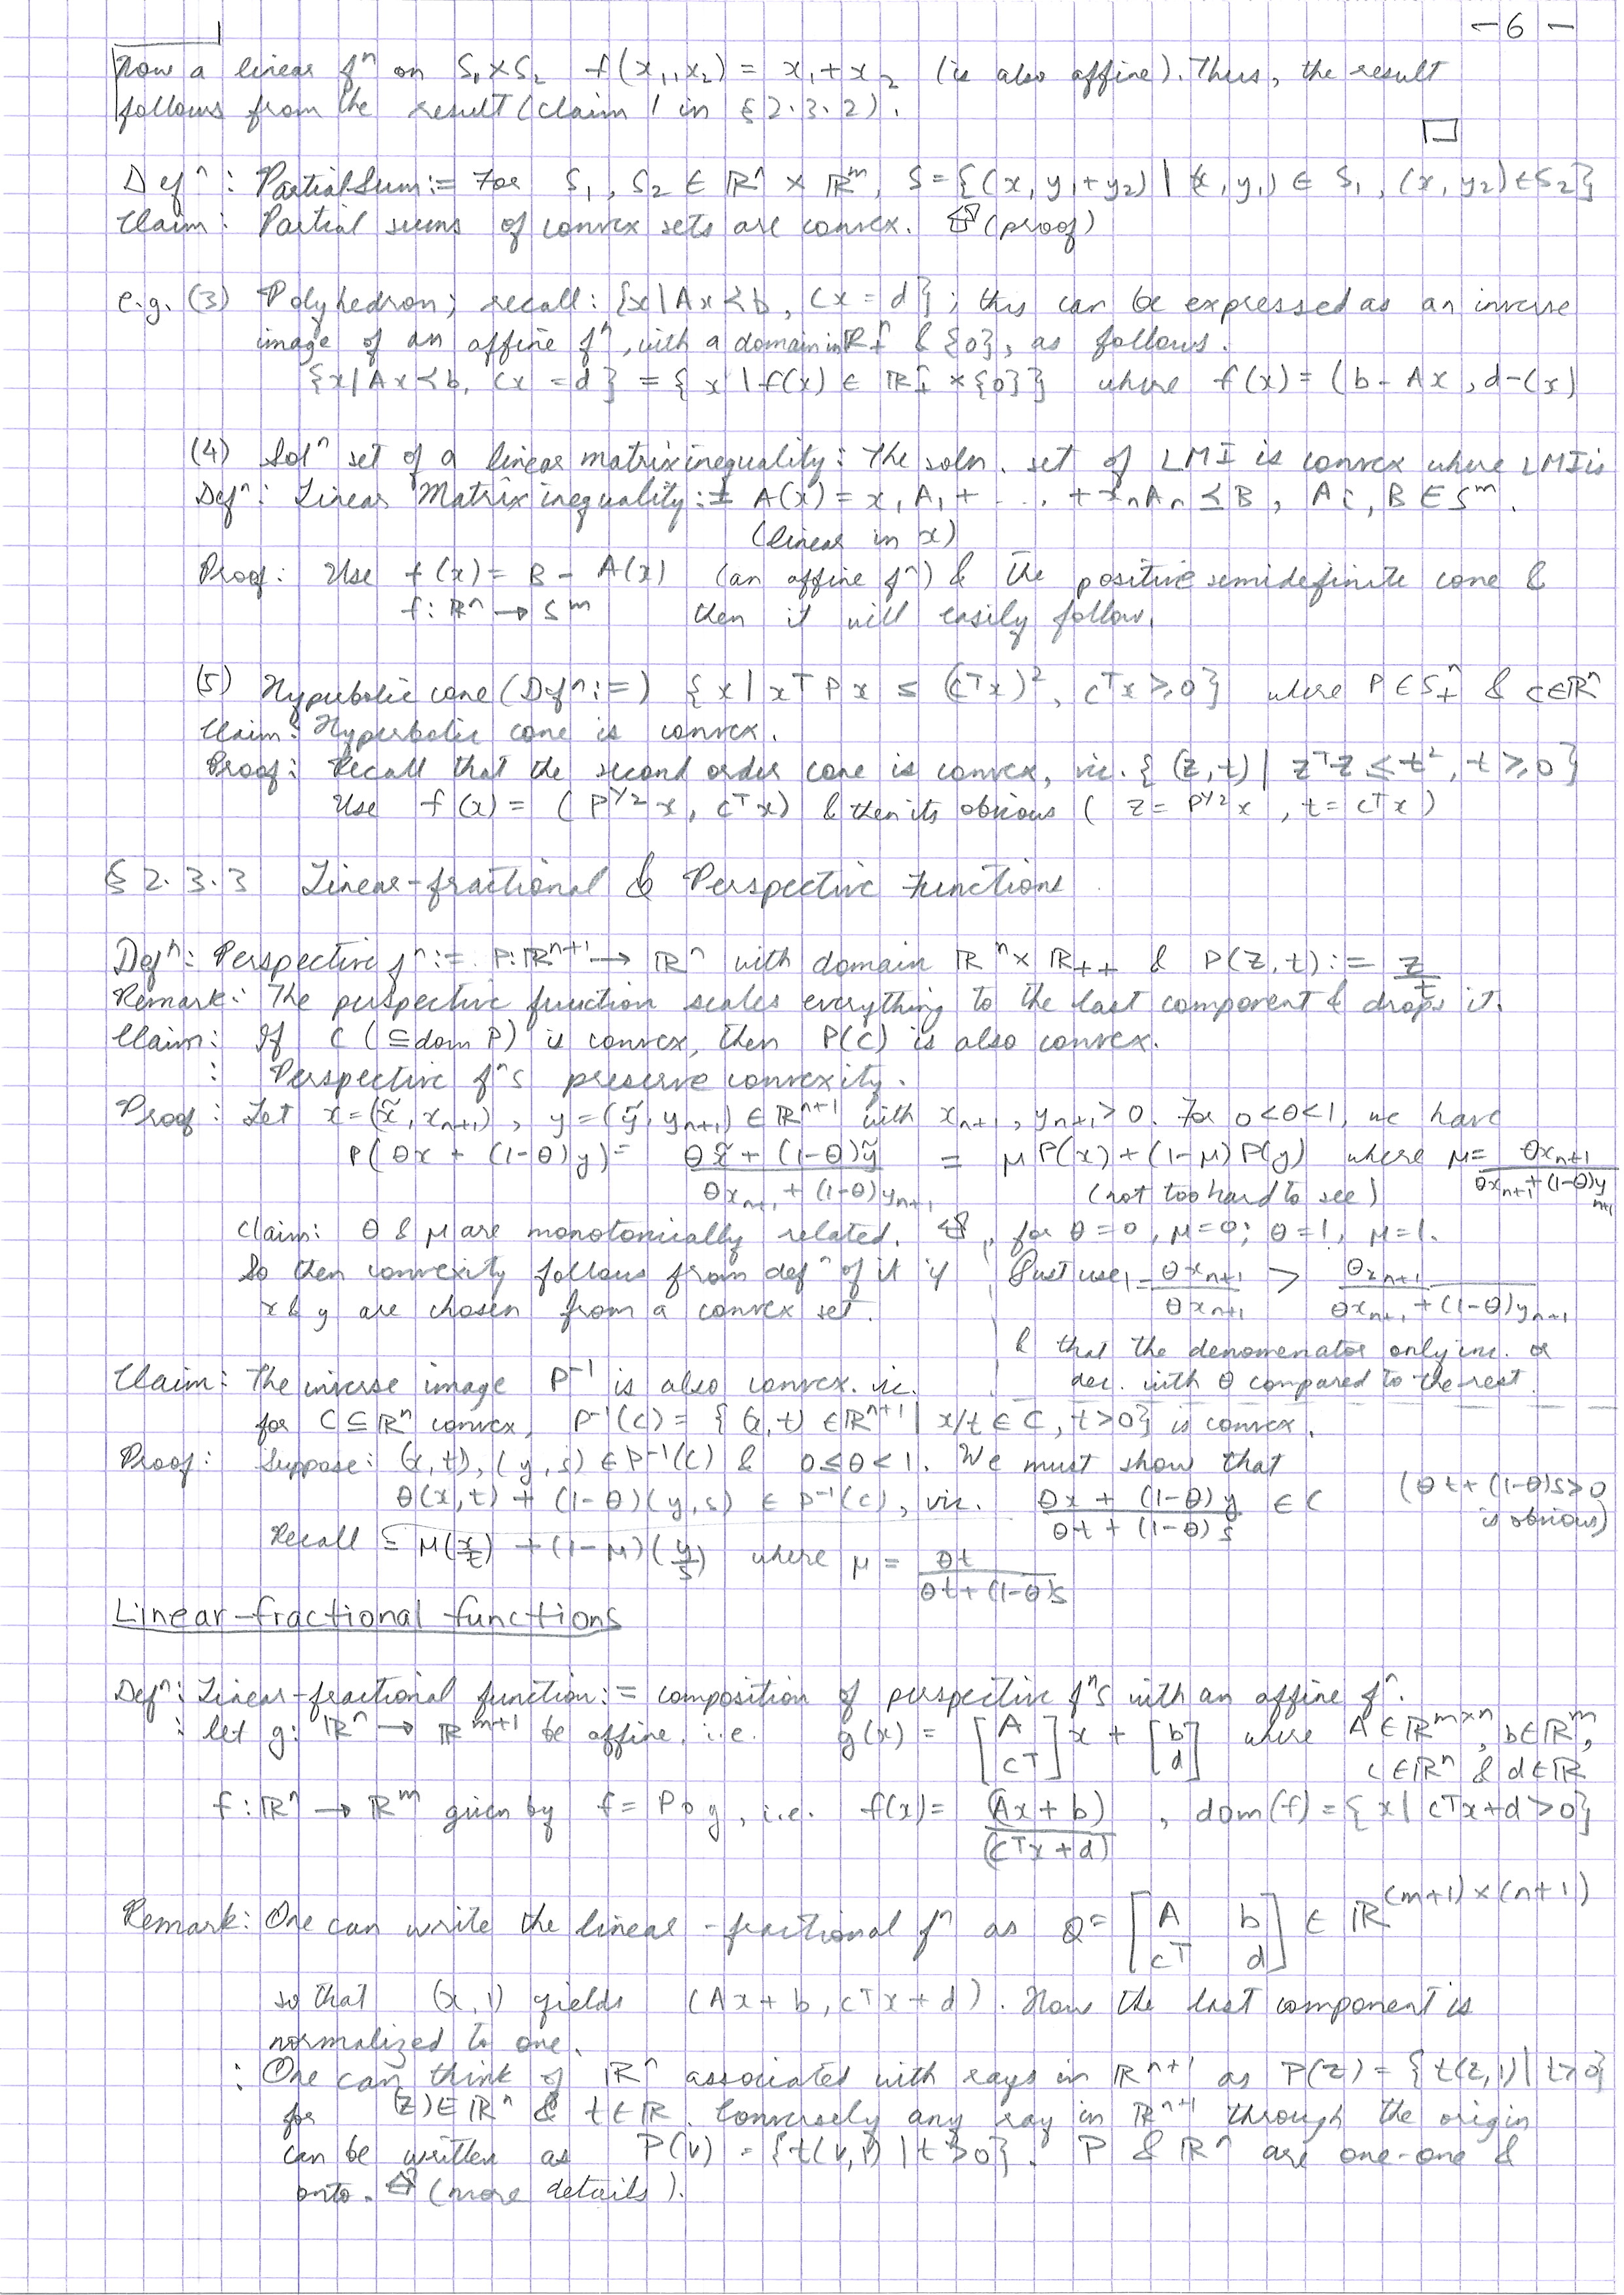 - 6 -
Now a linear fⁿ on S₁ × S₂ f(x₁, x₂) = x₁ + x₂ (is also affine). Thus, the result
follows from the result (claim 1 in § 2.3.2).
□
Defⁿ: Partial Sum := For S₁, S₂ ∈ ℝⁿ × ℝᵐ, S = {(x, y₁+y₂) | (x, y₁) ∈ S₁, (x, y₂) ∈ S₂}
Claim: Partial sums of convex sets are convex. (proof)
e.g. (3) Polyhedron; recall: {x | Ax ≼ b, Cx = d}; this can be expressed as an inverse
image of an affine fⁿ, with a domain in ℝ₊ⁿ & {0}, as follows.
{x | Ax ≼ b, Cx = d} = {x | f(x) ∈ ℝ₊ⁿ × {0}} where f(x) = (b - Ax, d - Cx)
(4) Solⁿ set of a linear matrix inequality: The soln. set of LMI is convex where LMI is
Defⁿ: Linear Matrix inequality := A(x) = x₁A₁ + ... + xₙAₙ ≼ B, Aᵢ, B ∈ Sᵐ.
(linear in x)
Proof: Use f(x) = B - A(x) (an affine fⁿ) & the positive semidefinite cone &
f: ℝⁿ → Sᵐ then it will easily follow.
(5) Hyperbolic cone (Defⁿ :=) {x | xᵀPx ≤ (cᵀx)², cᵀx ≥ 0} where P ∈ S₊ⁿ & c ∈ ℝⁿ
Claim: Hyperbolic cone is convex.
Proof: Recall that the second order cone is convex, viz. {(z, t) | zᵀz ≤ t², t ≥ 0}
Use f(x) = (P^{1/2}x, cᵀx) & then its obvious (z = P^{1/2}x, t = cᵀx)
§ 2.3.3 Linear-fractional & Perspective Functions
Defⁿ: Perspective fⁿ := P: ℝⁿ⁺¹ → ℝⁿ with domain ℝⁿ × ℝ₊₊ & P(z, t) := z/t
Remark: The perspective function scales everything to the last component & drops it.
Claim: If C (⊆ dom P) is convex, then P(C) is also convex.
: Perspective fⁿs preserve convexity.
Proof: Let x = (x̃, xₙ₊₁), y = (ỹ, yₙ₊₁) ∈ ℝⁿ⁺¹ with xₙ₊₁, yₙ₊₁ > 0. For 0 < θ < 1, we have
P(θx + (1-θ)y) = (θx̃ + (1-θ)ỹ)/(θxₙ₊₁ + (1-θ)yₙ₊₁) = μP(x) + (1-μ)P(y) where μ = θxₙ₊₁/(θxₙ₊₁ + (1-θ)yₙ₊₁)
(not too hard to see)
Claim: θ & μ are monotonically related. , for θ=0, μ=0; θ=1, μ=1.
So then convexity follows from defⁿ of it if
x & y are chosen from a convex set.
Just use 1 = θxₙ₊₁/θxₙ₊₁ > θxₙ₊₁/(θxₙ₊₁ + (1-θ)yₙ₊₁)
& that the denomenator only inc. or
dec. with θ compared to the rest
Claim: The inverse image P⁻¹ is also convex. viz.
for C ⊆ ℝⁿ convex, P⁻¹(C) = {(x, t) ∈ ℝⁿ⁺¹ | x/t ∈ C, t > 0} is convex.
Proof: Suppose: (x, t), (y, s) ∈ P⁻¹(C) & 0 ≤ θ < 1. We must show that
θ(x, t) + (1-θ)(y, s) ∈ P⁻¹(C), viz. (θx + (1-θ)y)/(θt + (1-θ)s) ∈ C (θt + (1-θ)s > 0
is obvious)
Recall = μ(x/t) + (1-μ)(y/s) where μ = θt/(θt + (1-θ)s)
Linear-fractional functions
Defⁿ: Linear-fractional function := composition of perspective fⁿs with an affine fⁿ.
: let g: ℝⁿ → ℝᵐ⁺¹ be affine, i.e. g(x) = [A; cᵀ] x + [b; d] where A ∈ ℝᵐˣⁿ, b ∈ ℝᵐ,
c ∈ ℝⁿ & d ∈ ℝ
f: ℝⁿ → ℝᵐ given by f = P∘g, i.e. f(x) = (Ax + b)/(cᵀx + d), dom(f) = {x | cᵀx + d > 0}
Remark: One can write the linear-fractional fⁿ as Q = [A b; cᵀ d] ∈ ℝ^{(m+1)×(n+1)}
so that (x, 1) yields (Ax + b, cᵀx + d). Now the last component is
normalized to one.
: One can think of ℝⁿ associated with rays in ℝⁿ⁺¹ as P(z) = {t(z, 1) | t > 0}
for (z) ∈ ℝⁿ & t ∈ ℝ. Conversely any ray in ℝⁿ⁺¹ through the origin
can be written as P(v) = {t(v, 1) | t > 0}. P & ℝⁿ are one-one &
onto. (more details).